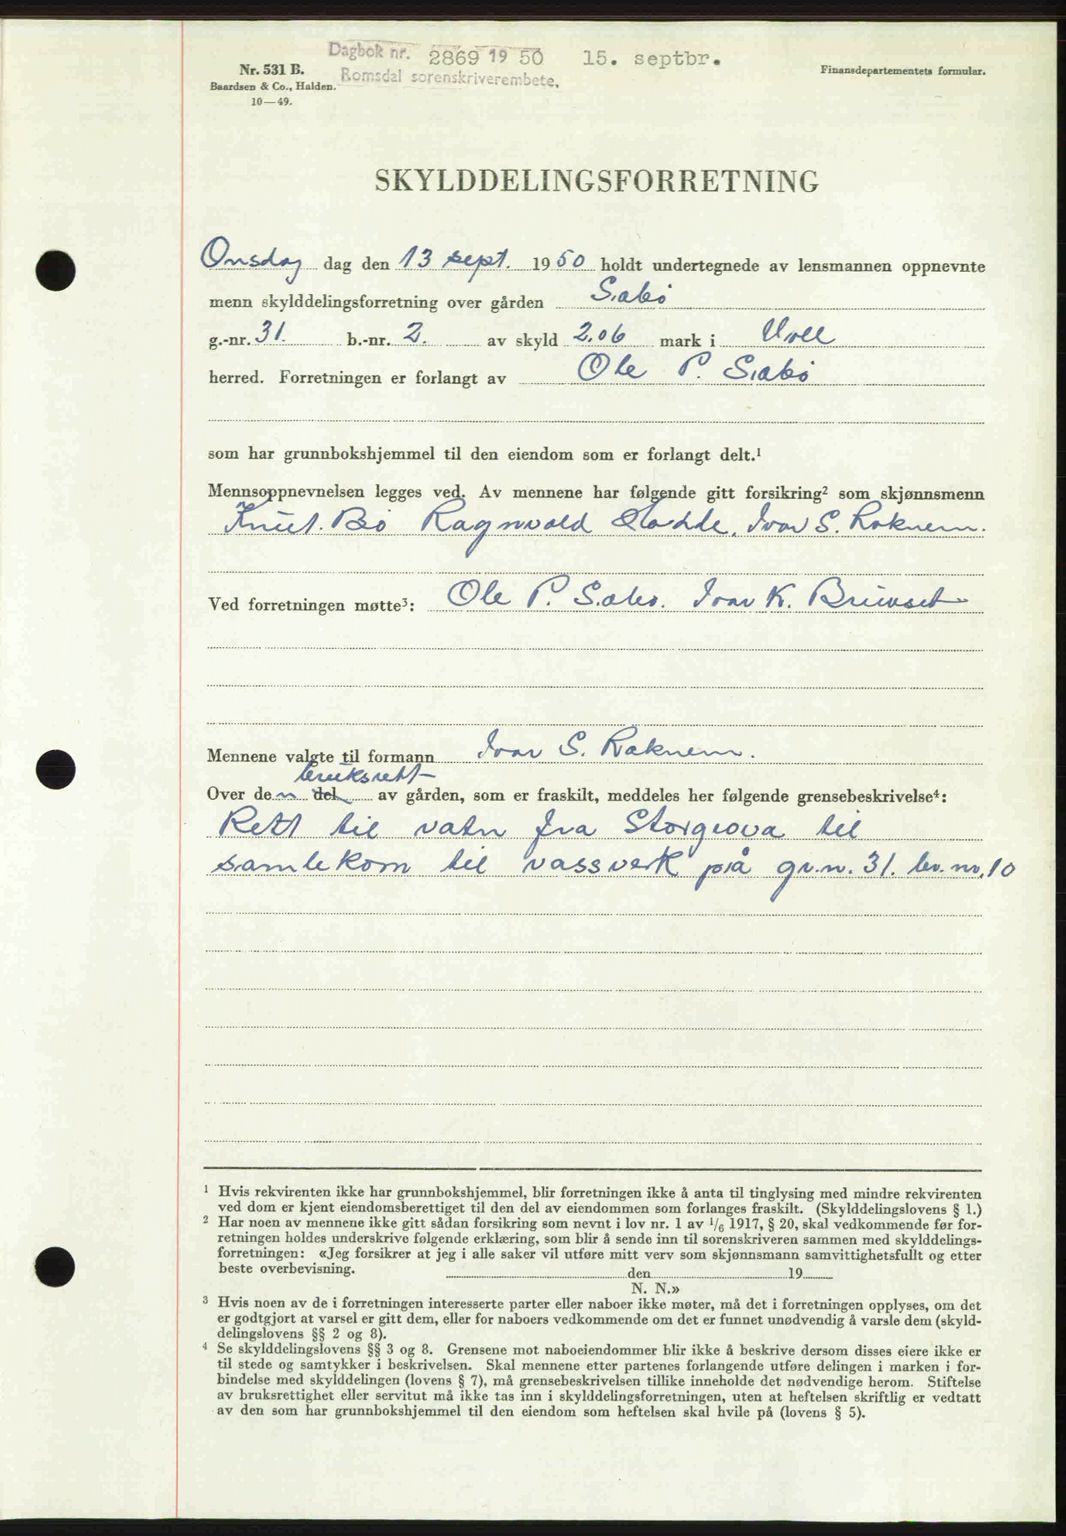 Dagbok nr. 2869 19 50 15. septbr.
Romsdal sorenskriverembete.
Nr. 531 B.
Baardsen & Co., Halden.
10—49.
Finansdepartementets formular.
SKYLDDELINGSFORRETNING
Onsdag dag den 13 sept. 1950 holdt undertegnede av lensmannen oppnevnte
menn skylddelingsforretning over gården Sabø
g.-nr. 31. b.-nr. 2. av skyld 2.06 mark i
herred. Forretningen er forlangt av Ole P. Sabø
som har grunnbokshjemmel til den eiendom som er forlangt delt.¹
Mennsoppnevnelsen legges ved. Av mennene har følgende gitt forsikring² som skjønnsmenn
Knut Bø Ragnvald Ivar S. Raknem.
Ved forretningen møtte³: Ole P. Sabø. Ivar K. Bruaset
Mennene valgte til formann Ivar S. Raknem.
bruksrett
Over den del av gården, som er fraskilt, meddeles her følgende grensebeskrivelse⁴:
Rett til vatn fra Storgrova til
samlekom til vassverk på gr.n. 31. br. nr. 10
¹ Hvis rekvirenten ikke har grunnbokshjemmel, blir forretningen ikke å anta til tinglysing med mindre rekvirenten
ved dom er kjent eiendomsberettiget til den del av eiendommen som forlanges fraskilt. (Skylddelingslovens § 1.)
² Har noen av mennene ikke gitt sådan forsikring som nevnt i lov nr. 1 av 1/6 1917, § 20, skal vedkommende før for-
retningen holdes underskrive følgende erklæring, som blir å sende inn til sorenskriveren sammen med skylddelings-
forretningen: «Jeg forsikrer at jeg i alle saker vil utføre mitt verv som skjønnsmann samvittighetsfullt og etter
beste overbevisning. den 19
N. N.»
³ Hvis noen av de i forretningen interesserte parter eller naboer ikke møter, må det i forretningen opplyses, om det
er godtgjort at varsel er gitt dem, eller for naboers vedkommende om det er funnet unødvendig å varsle dem (skyld-
delingslovens §§ 2 og 8).
⁴ Se skylddelingslovens §§ 3 og 8. Grensene mot naboeiendommer blir ikke å beskrive dersom disses eiere ikke er
til stede og samtykker i beskrivelsen. Skal mennene etter partenes forlangende utføre delingen i marken i for-
bindelse med skylddelingen (lovens § 7), må grensebeskrivelsen tillike inneholde det nødvendige herom. Stiftelse
av bruksrettighet eller servitut må ikke tas inn i skylddelingsforretningen, uten at heftelsen skriftlig er vedtatt
av den som har grunnbokshjemmel til den eiendom som heftelsen skal hvile på (lovens § 5).